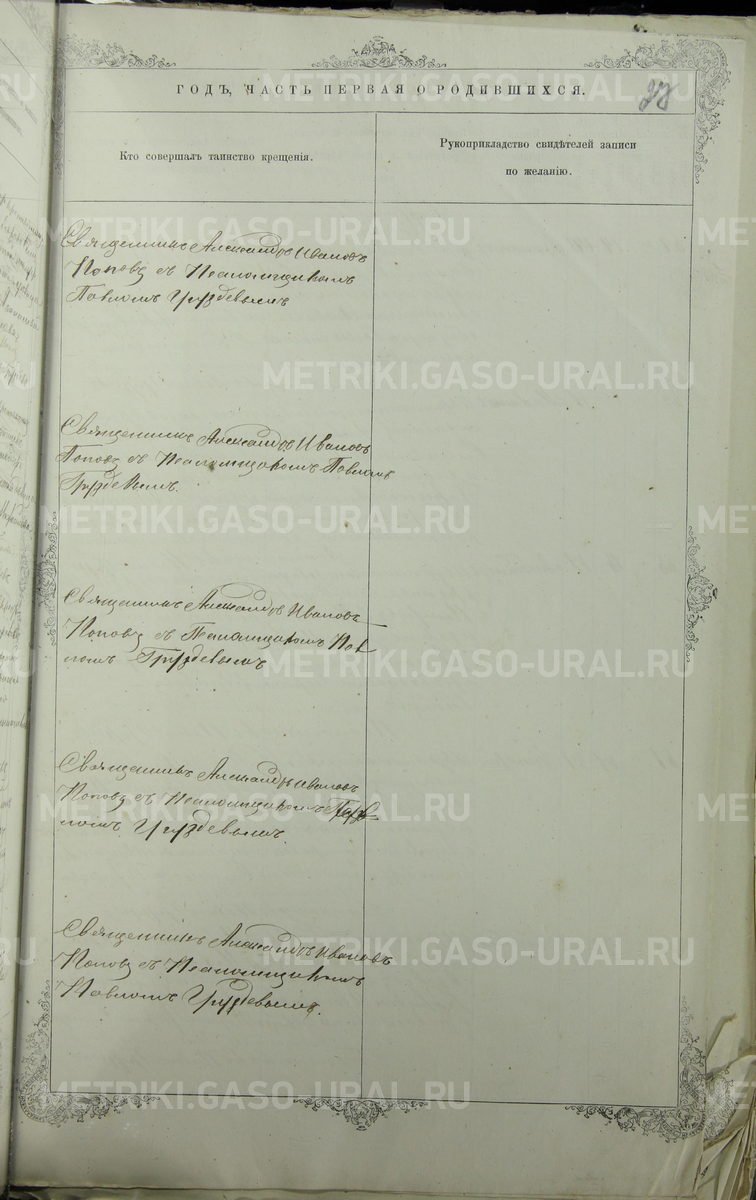 ГОДЪ, ЧАСТЬ ПЕРВАЯ О РОДИВШИХСЯ.
Кто совершалъ таинство крещенія.
Рукоприкладство свидѣтелей записи
по желанію.
Священникъ Александръ Ивановъ
Поповъ съ Псаломщикомъ
Павломъ Груздевымъ
Священникъ Александръ Ивановъ
Поповъ съ Псаломщикомъ Павломъ
Груздевымъ.
Священникъ Александръ Ивановъ
Поповъ съ Псаломщикомъ Пав
ломъ Груздевымъ
Священникъ Александръ Ивановъ
Поповъ съ Псаломщикомъ
ломъ Груздевымъ.
Священникъ Александръ Ивановъ
Поповъ съ Псаломщикомъ
Павломъ Груздевымъ.
METRIKI.GASO-URAL.RU